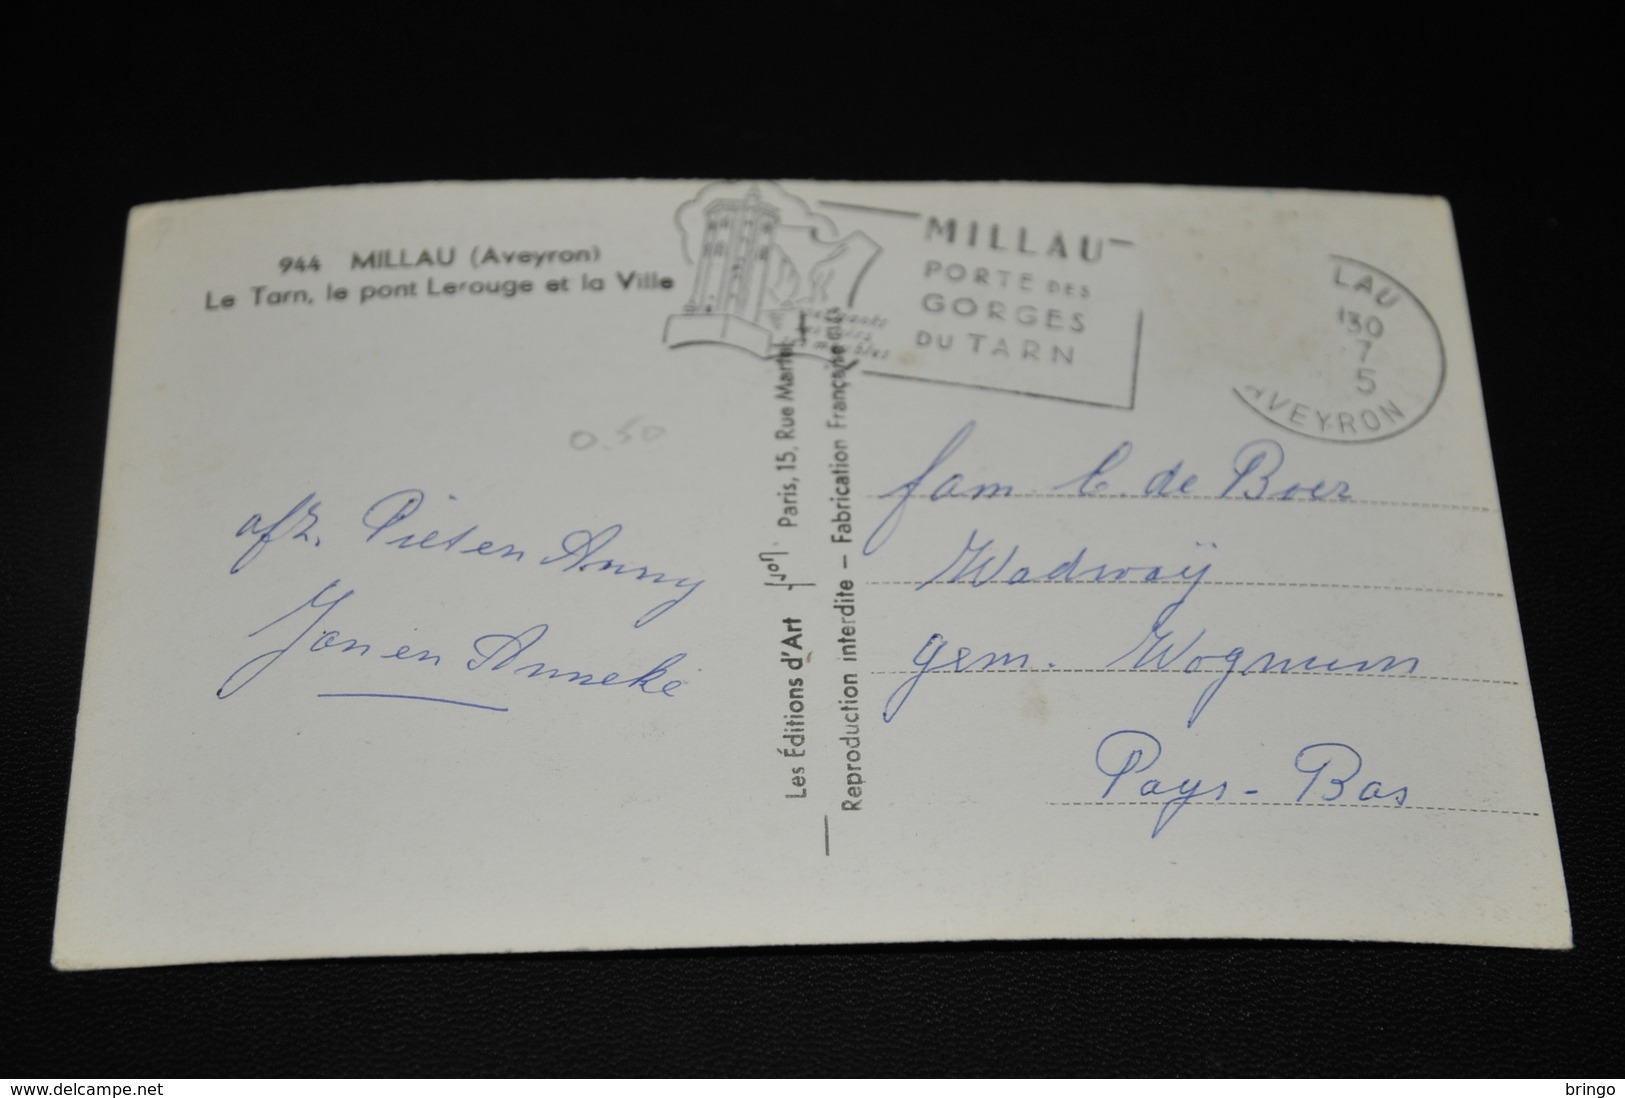 944 MILLAU (Aveyron)
Le Tarn, le pont Lerouge et la Ville
MILLAU
PORTE DES
GORGES
DU TARN
LAU
30
7
5
AVEYRON
0.50
afz. Piet en Anny
Jan en Anneke
Les Éditions d'Art Yvon Paris, 15, Rue Martel
Reproduction interdite — Fabrication Française
fam. C. de Boer
Wadway
gem. Wognum
Pays-Bas
www.delcampe.net
bringo